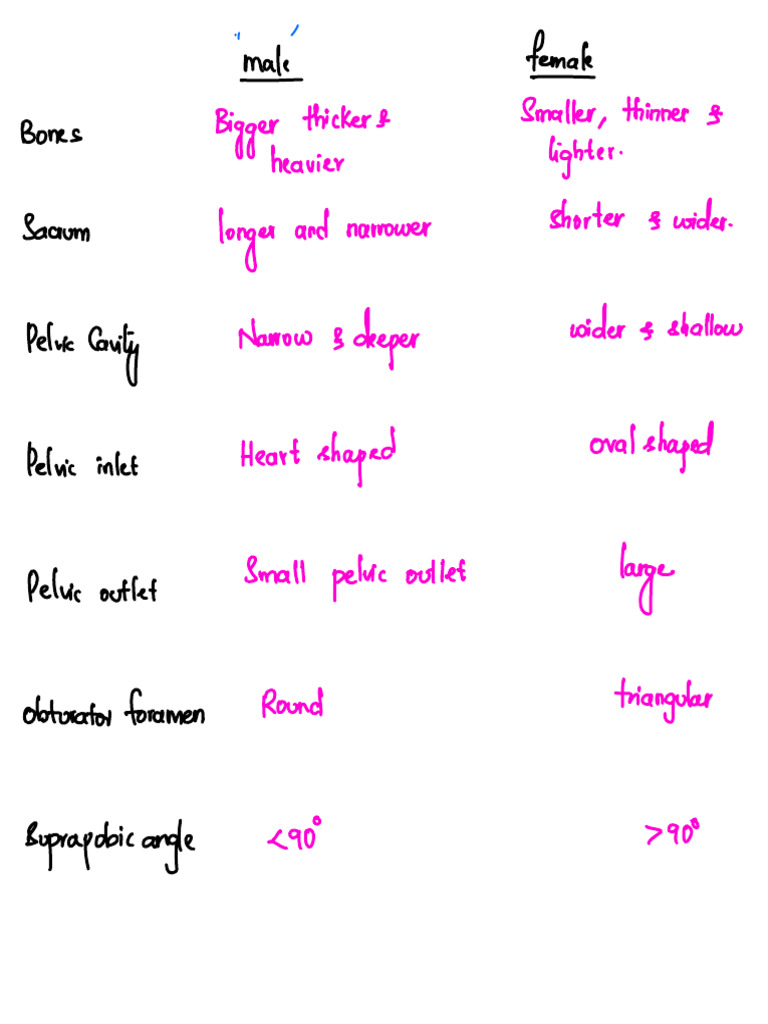 male female
Bones Bigger thicker & Smaller, thinner &
heavier lighter.
Sacrum longer and narrower shorter & wider.
Pelvic Cavity Narrow & deeper wider & shallow
Pelvic inlet Heart shaped oval shaped
Pelvic outlet Small pelvic outlet large
obturator foramen Round triangular
Suprapobic angle <90° >90°